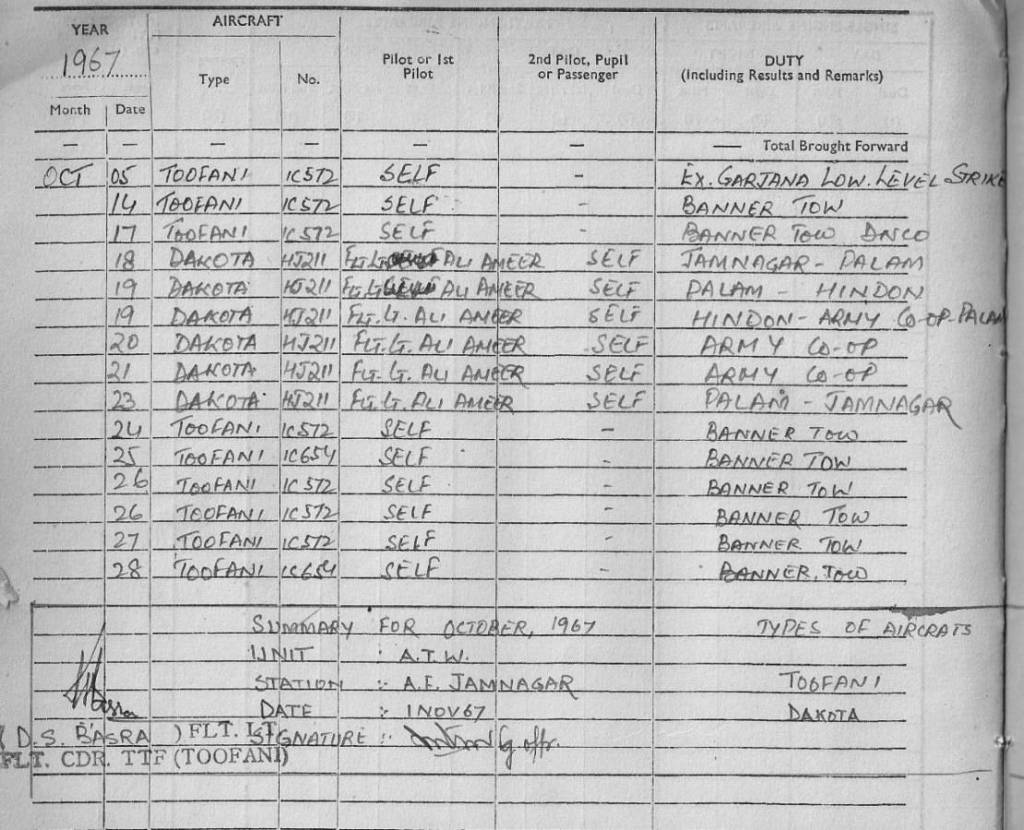 YEAR AIRCRAFT Pilot or 1st Pilot 2nd Pilot, Pupil or Passenger DUTY (Including Results and Remarks)
1967 Type No.
Month Date
— — — — — — — Total Brought Forward
OCT 05 TOOFANI IC572 SELF - EX. GARJANA LOW. LEVEL STRIKE
14 TOOFANI IC572 SELF - BANNER TOW
17 TOOFANI IC572 SELF - BANNER TOW DNCO
18 DAKOTA HJ211 FLT. LT. ALI AMEER SELF JAMNAGAR - PALAM
19 DAKOTA HJ211 FLT. LT. ALI AMEER SELF PALAM - HINDON
19 DAKOTA HJ211 FLT. LT. ALI AMEER SELF HINDON - ARMY CO-OP - PALAM
20 DAKOTA HJ211 FLT. LT. ALI AMEER SELF ARMY CO-OP
21 DAKOTA HJ211 FLT. LT. ALI AMEER SELF ARMY CO-OP
23 DAKOTA HJ211 FLT. LT. ALI AMEER SELF PALAM - JAMNAGAR
24 TOOFANI IC572 SELF - BANNER TOW
25 TOOFANI IC654 SELF - BANNER TOW
26 TOOFANI IC572 SELF - BANNER TOW
26 TOOFANI IC572 SELF - BANNER TOW
27 TOOFANI IC572 SELF - BANNER TOW
28 TOOFANI IC654 SELF - BANNER TOW
SUMMARY FOR OCTOBER, 1967 TYPES OF AIRCRATS
UNIT : A.T.W.
STATION :- A.F. JAMNAGAR TOOFANI
DATE :- 1 NOV 67 DAKOTA
SIGNATURE :- fg offr.
(D.S. BASRA) FLT. LT.
FLT. CDR. TTF (TOOFANI)